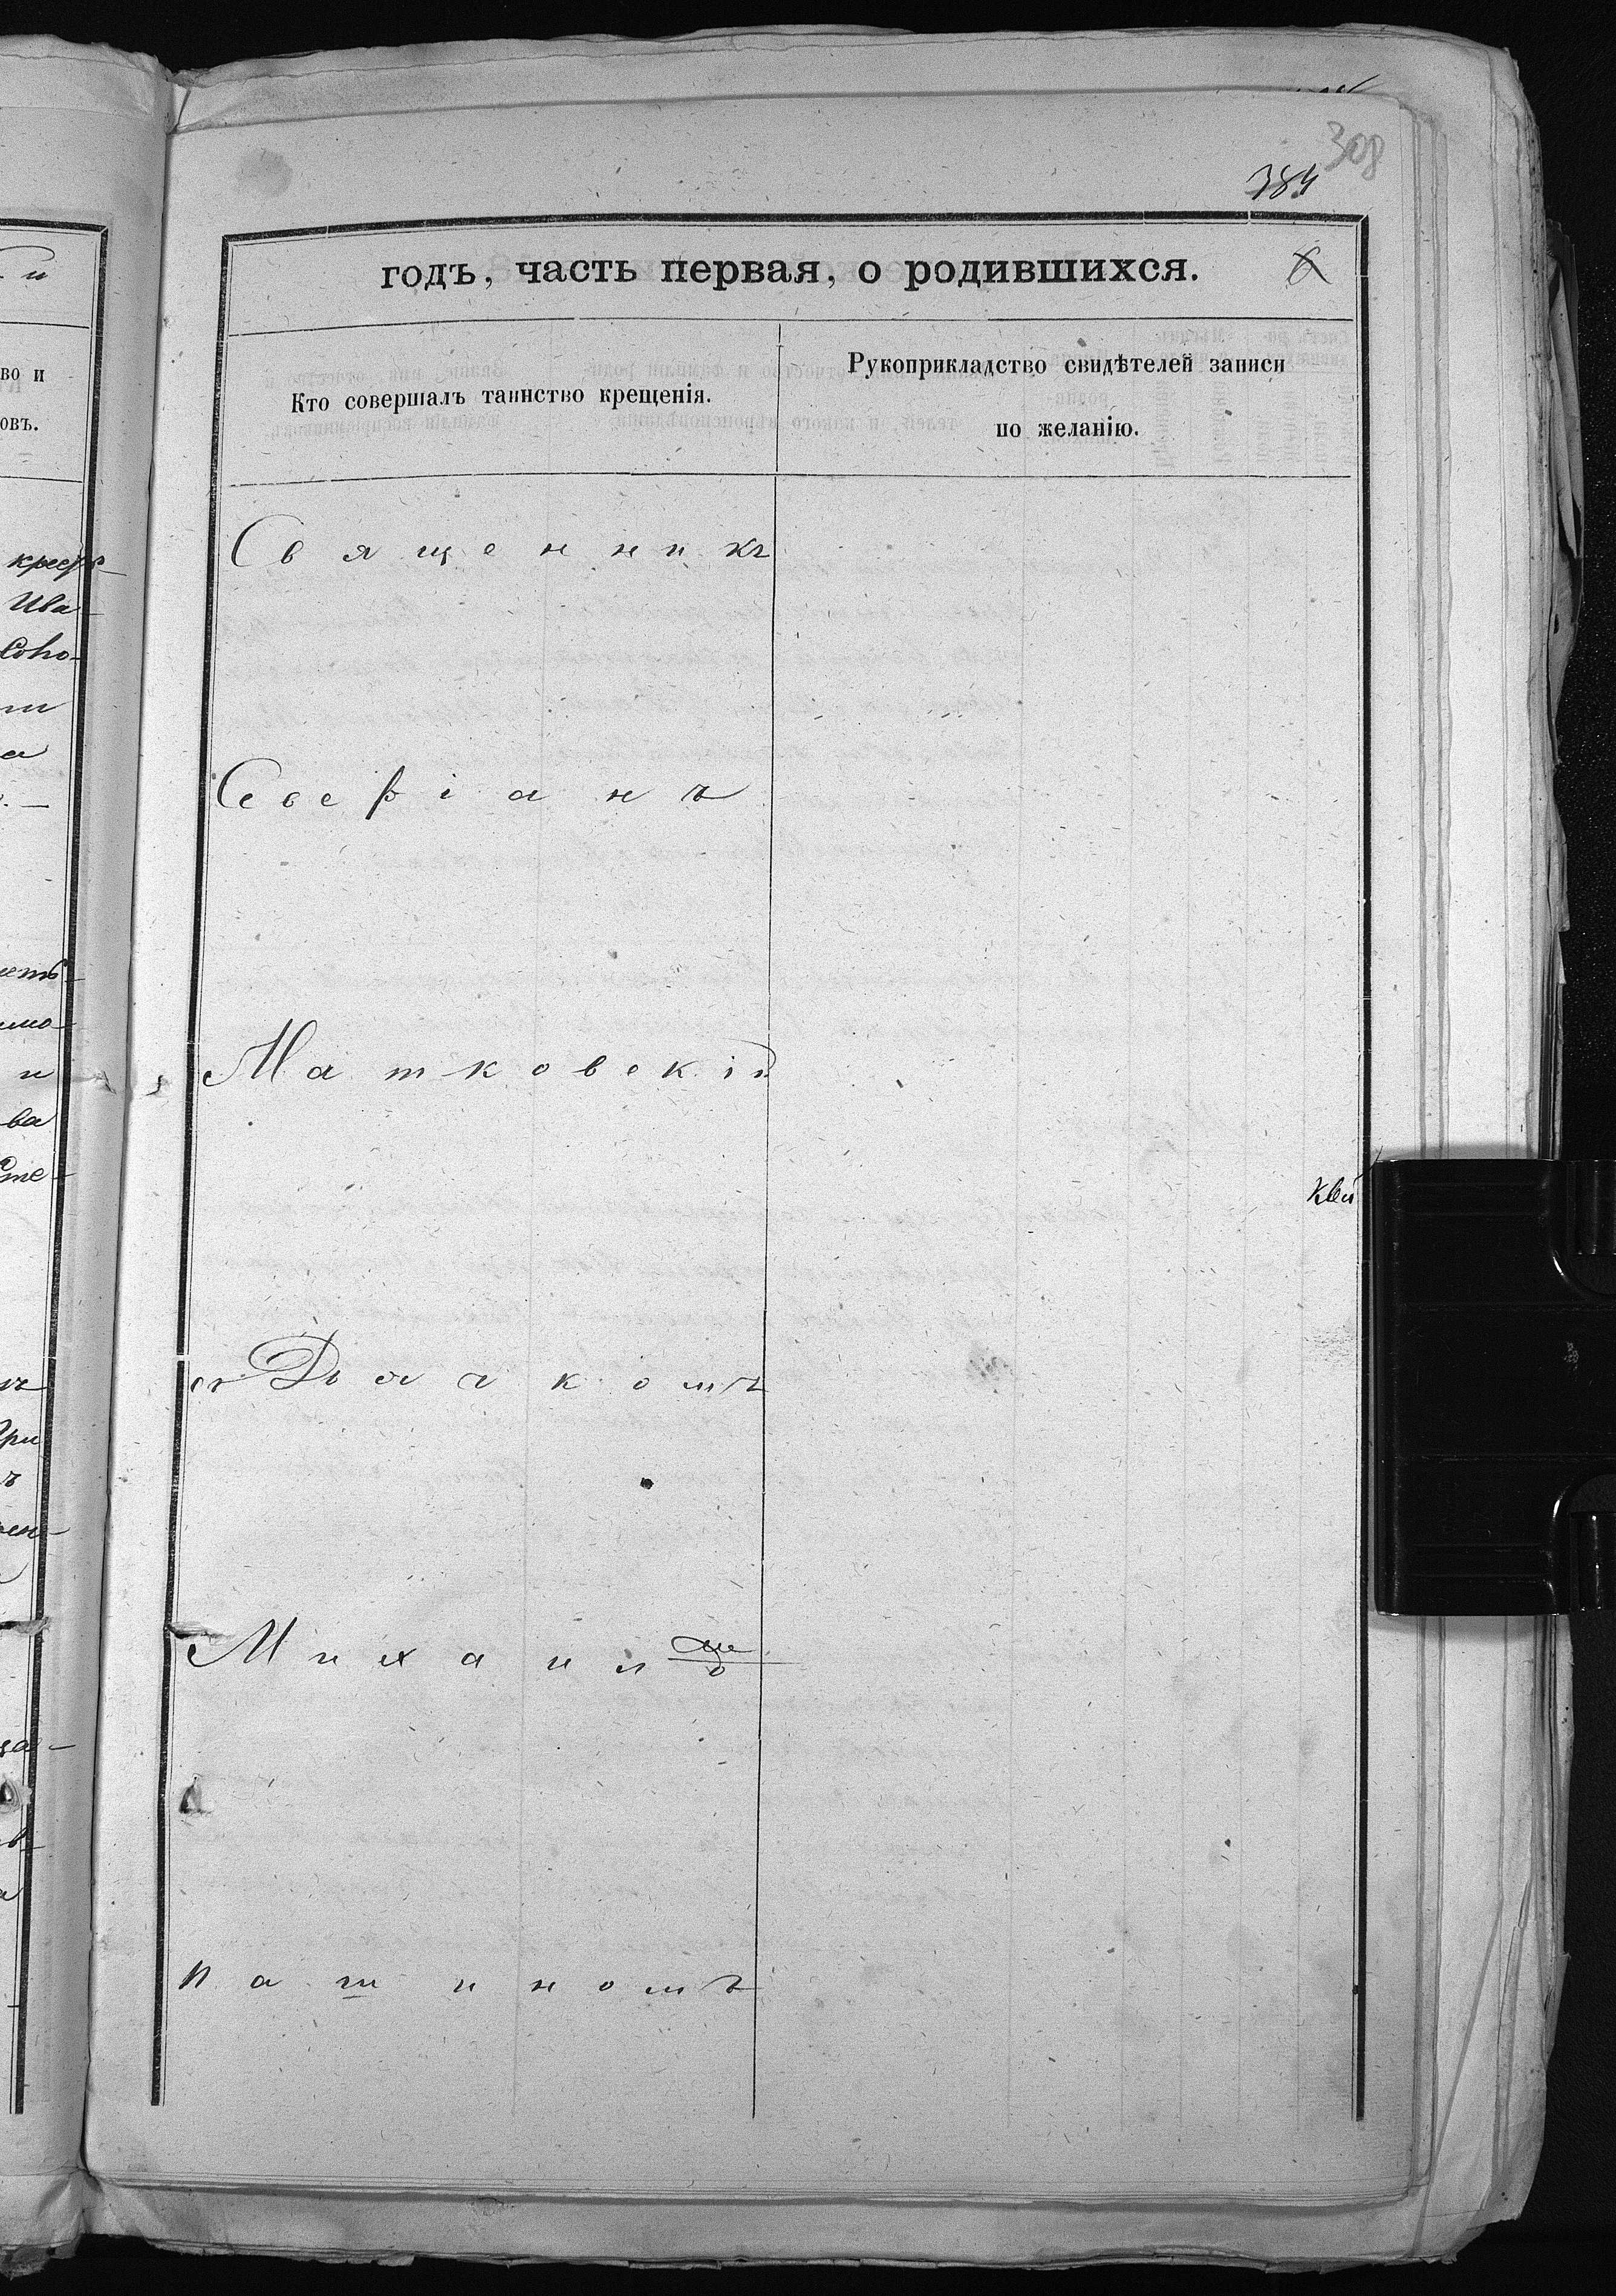 308
384
годъ, часть первая, о родившихся.
8
Кто совершалъ таинство крещенія.
Рукоприкладство свидѣтелей записи
по желанію.
Священникъ
Северіанъ
Матковскій
съ Дьячкомъ
Михаиломъ
пашиномъ
во и
овъ.
Ива
Соко-
та
а
и
ва
Сте-
Гри
ъ
ца-
а